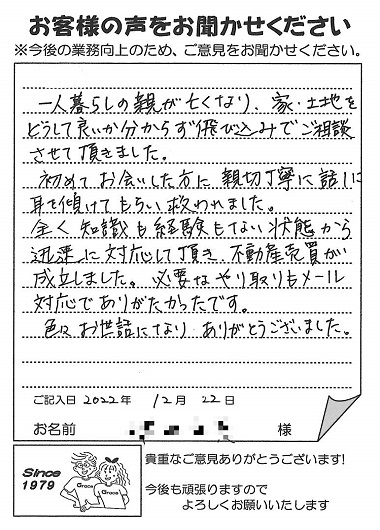 お客様の声をお聞かせください
※今後の業務向上のため、ご意見をお聞かせください。
一人暮らしの親が亡くなり、家・土地を
どうして良いか分からず飛び込みでご相談
させて頂きました。
初めてお会いした方に親切丁寧に話しに
耳を傾けてもらい救われました。
全く知識も経験もない状態から
迅速に対応して頂き、不動産売買が
成立しました。必要なやり取りもメール
対応でありがたかったです。
色々お世話になりありがとうございました。
ご記入日 2022年 12月 22日
お名前 様
Since
1979
Grace
Grace
貴重なご意見ありがとうございます!
今後も頑張りますので
よろしくお願いいたします